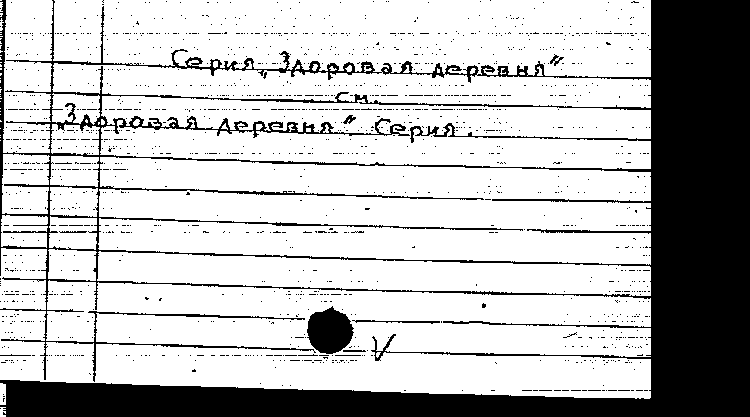 Серия „Здоровая деревня“
см.
„Здоровая деревня“ Серия.
V